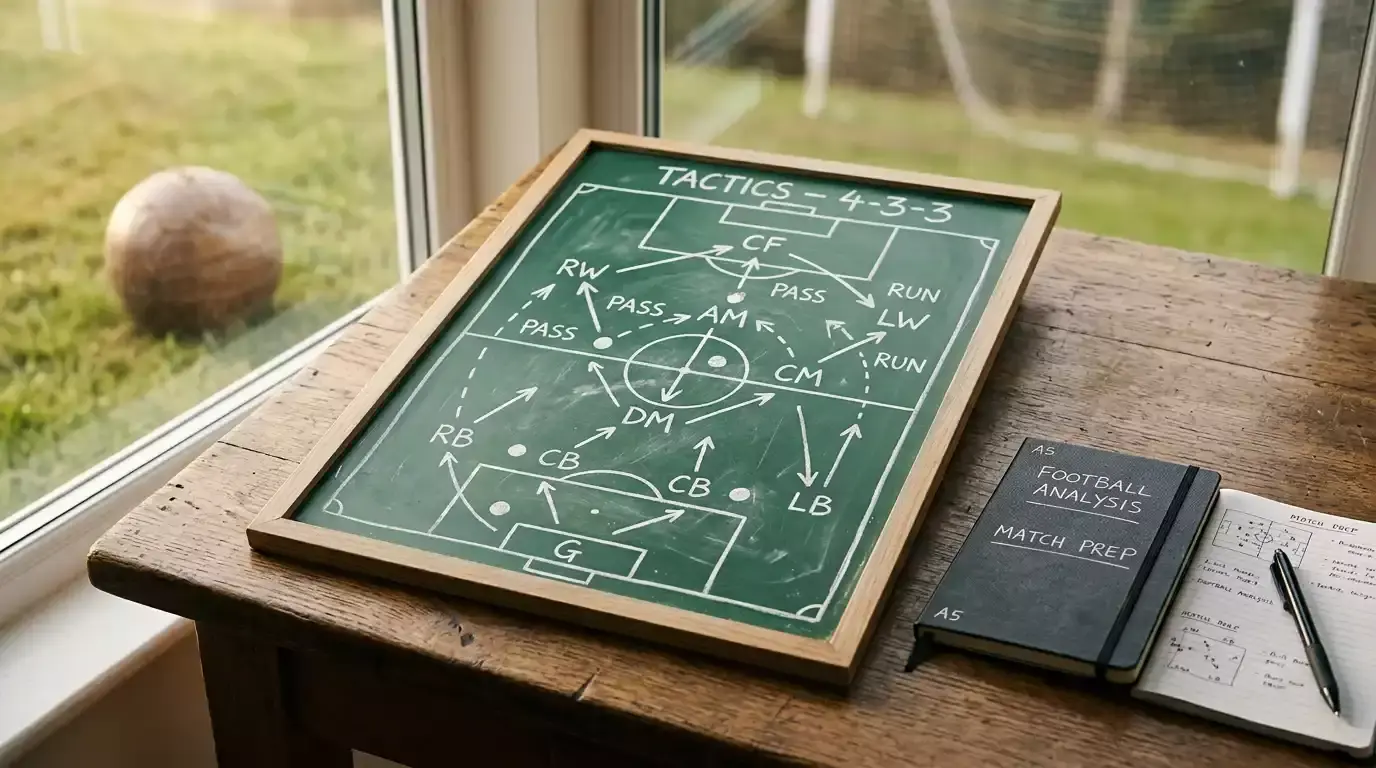 TACTICS – 4-3-3
CF
RW
PASS
RUN
PASS
AM
LW
PASS
RUN
CM
DM
RB
CB
CB
LB
G
A5
FOOTBALL
ANALYSIS
MATCH PREP
A5
MATCH PREP